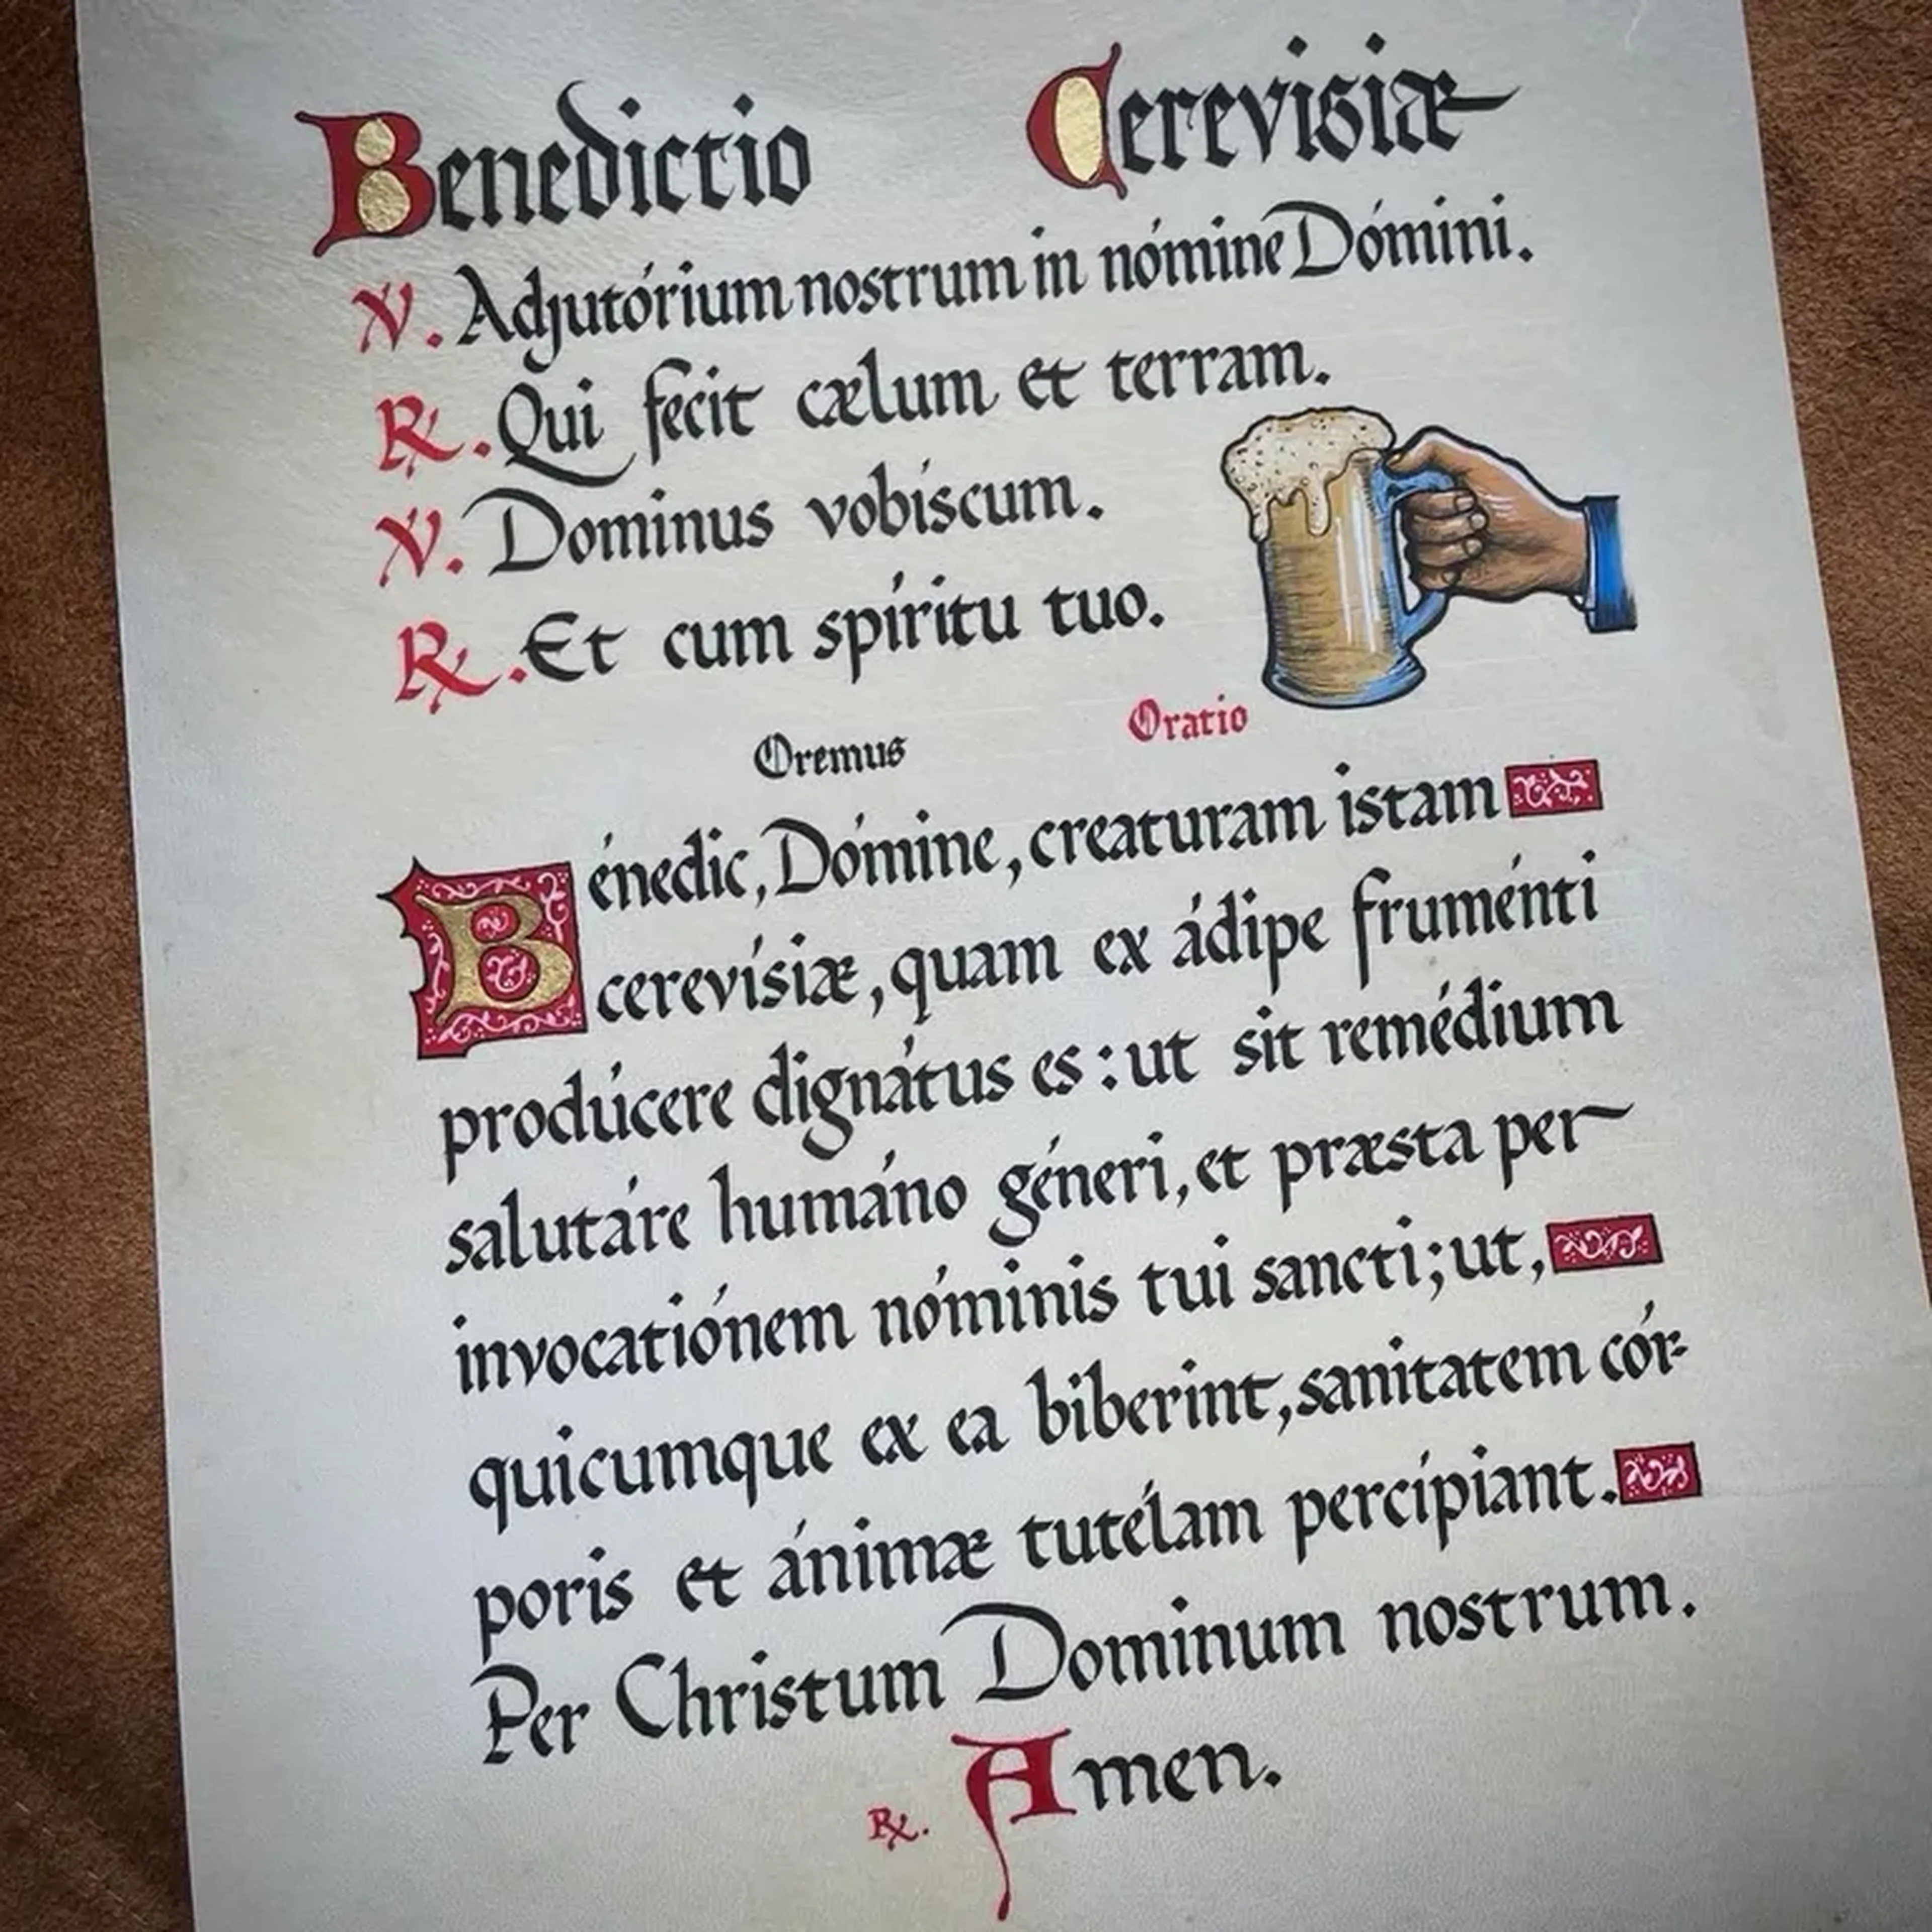 Benedictio Cerevisiæ
℣. Adjutórium nostrum in nómine Dómini.
℟. Qui fecit cælum et terram.
℣. Dominus vobíscum.
℟. Et cum spíritu tuo.
Oremus Oratio
Bénedic, Dómine, creaturam istam
cerevísiæ, quam ex ádipe fruménti
prodúcere dignátus es: ut sit remédium
salutáre humáno géneri, et præsta per
invocatiónem nóminis tui sancti; ut,
quicumque ex ea biberint, sanitatem cór-
poris et ánimæ tutélam percípiant.
Per Christum Dominum nostrum.
℟. Amen.